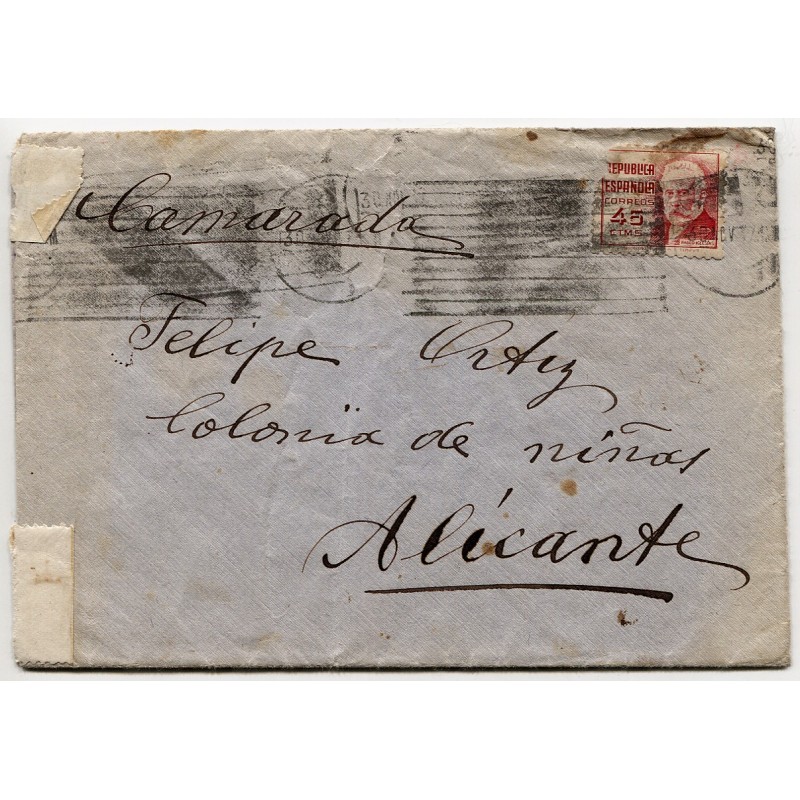 REPUBLICA
ESPAÑOLA
CORREOS
45
CTMS
Camarada
Felipe Ortiz
Colonia de niñas
Alicante